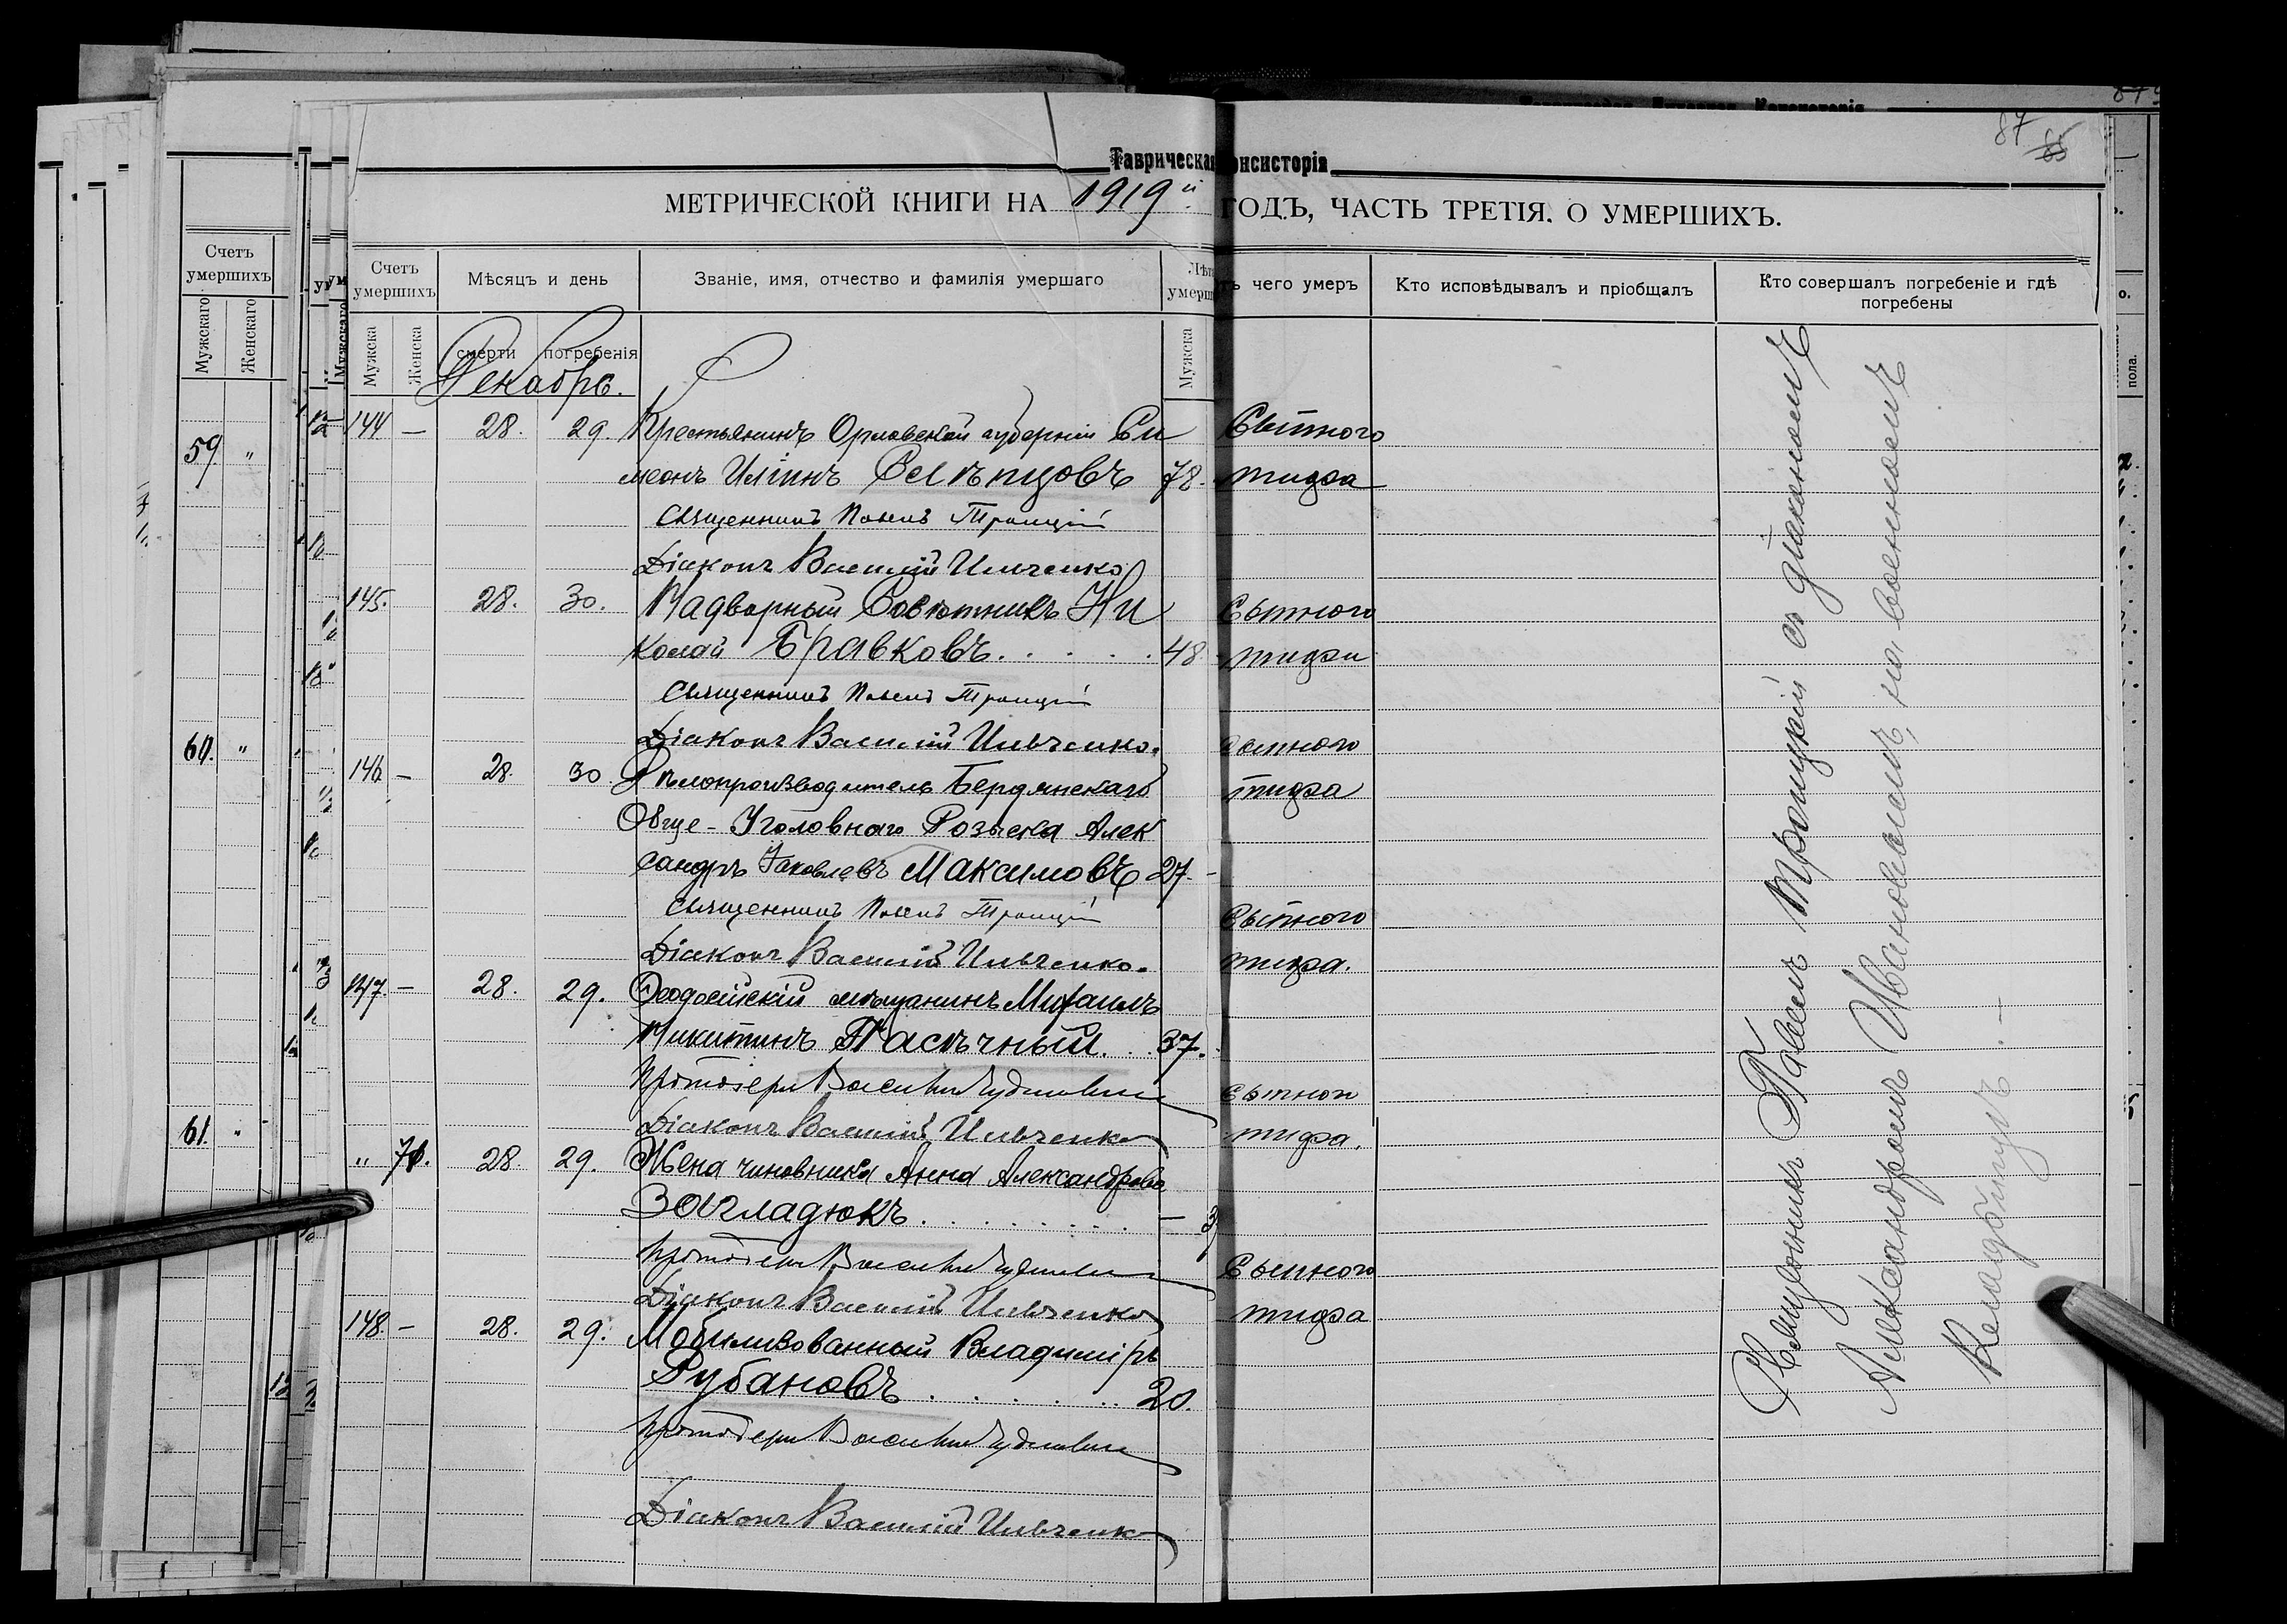 Таврическая Консисторія
87 85
МЕТРИЧЕСКОЙ КНИГИ НА 1919й ГОДЪ, ЧАСТЬ ТРЕТІЯ. О УМЕРШИХЪ.
Счетъ умершихъ
Мужскаго
Женскаго
59 "
60. "
61. "
Счетъ умершихъ
Мѣсяцъ и день
Званіе, имя, отчество и фамилія умершаго
Лѣта умерш
ъ чего умеръ
Кто исповѣдывалъ и пріобщалъ
Кто совершалъ погребеніе и гдѣ погребены
Мужска
Женска
смерти
погребенія
Мужска
Декабрь.
144 — 28. 29. Крестьянинъ Орловской губерніи Си Сыпного
меонъ Иліинъ Селѣпцовъ 78. тифа
Священникъ Павелъ Троицкій
Діаконъ Василій Ильченко
145. 28. 30. Надворный Совѣтникъ Ни Сыпного
колай Бравковъ. 48 тифа
Священникъ Павелъ Троицкій
Діаконъ Василій Ильченко. Сыпного
146 — 28. 30. Дѣлопроизводитель Бердянскаго тифа
Обще-Уголовнаго Розыска Алек
сандръ Іаковлевъ Максимовъ 27. -
Священникъ Павелъ Троицкій Сыпного
Діаконъ Василій Ильченко. тифа.
147. — 28. 29. Ѳеодосійскій мѣщанинъ Михаилъ
Никитинъ Пасѣчный. 37.
Протоіерей Василій Сыпного
Діаконъ Василій Ильченко тифа.
" 71. 28. 29. Жена чиновника Анна Александрова
Загладюкъ. —
Протоіерей Василій Сыпного
Діаконъ Василій Ильченко тифа
148. — 28. 29. Мобилизованный Владиміръ
Рубановъ 20.
Протоіерей Василій
Діаконъ Василій Ильченко
Священникъ Павелъ Троицкій съ діакономъ
Александромъ Ивановымъ, на военномъ
Кладбищѣ. —